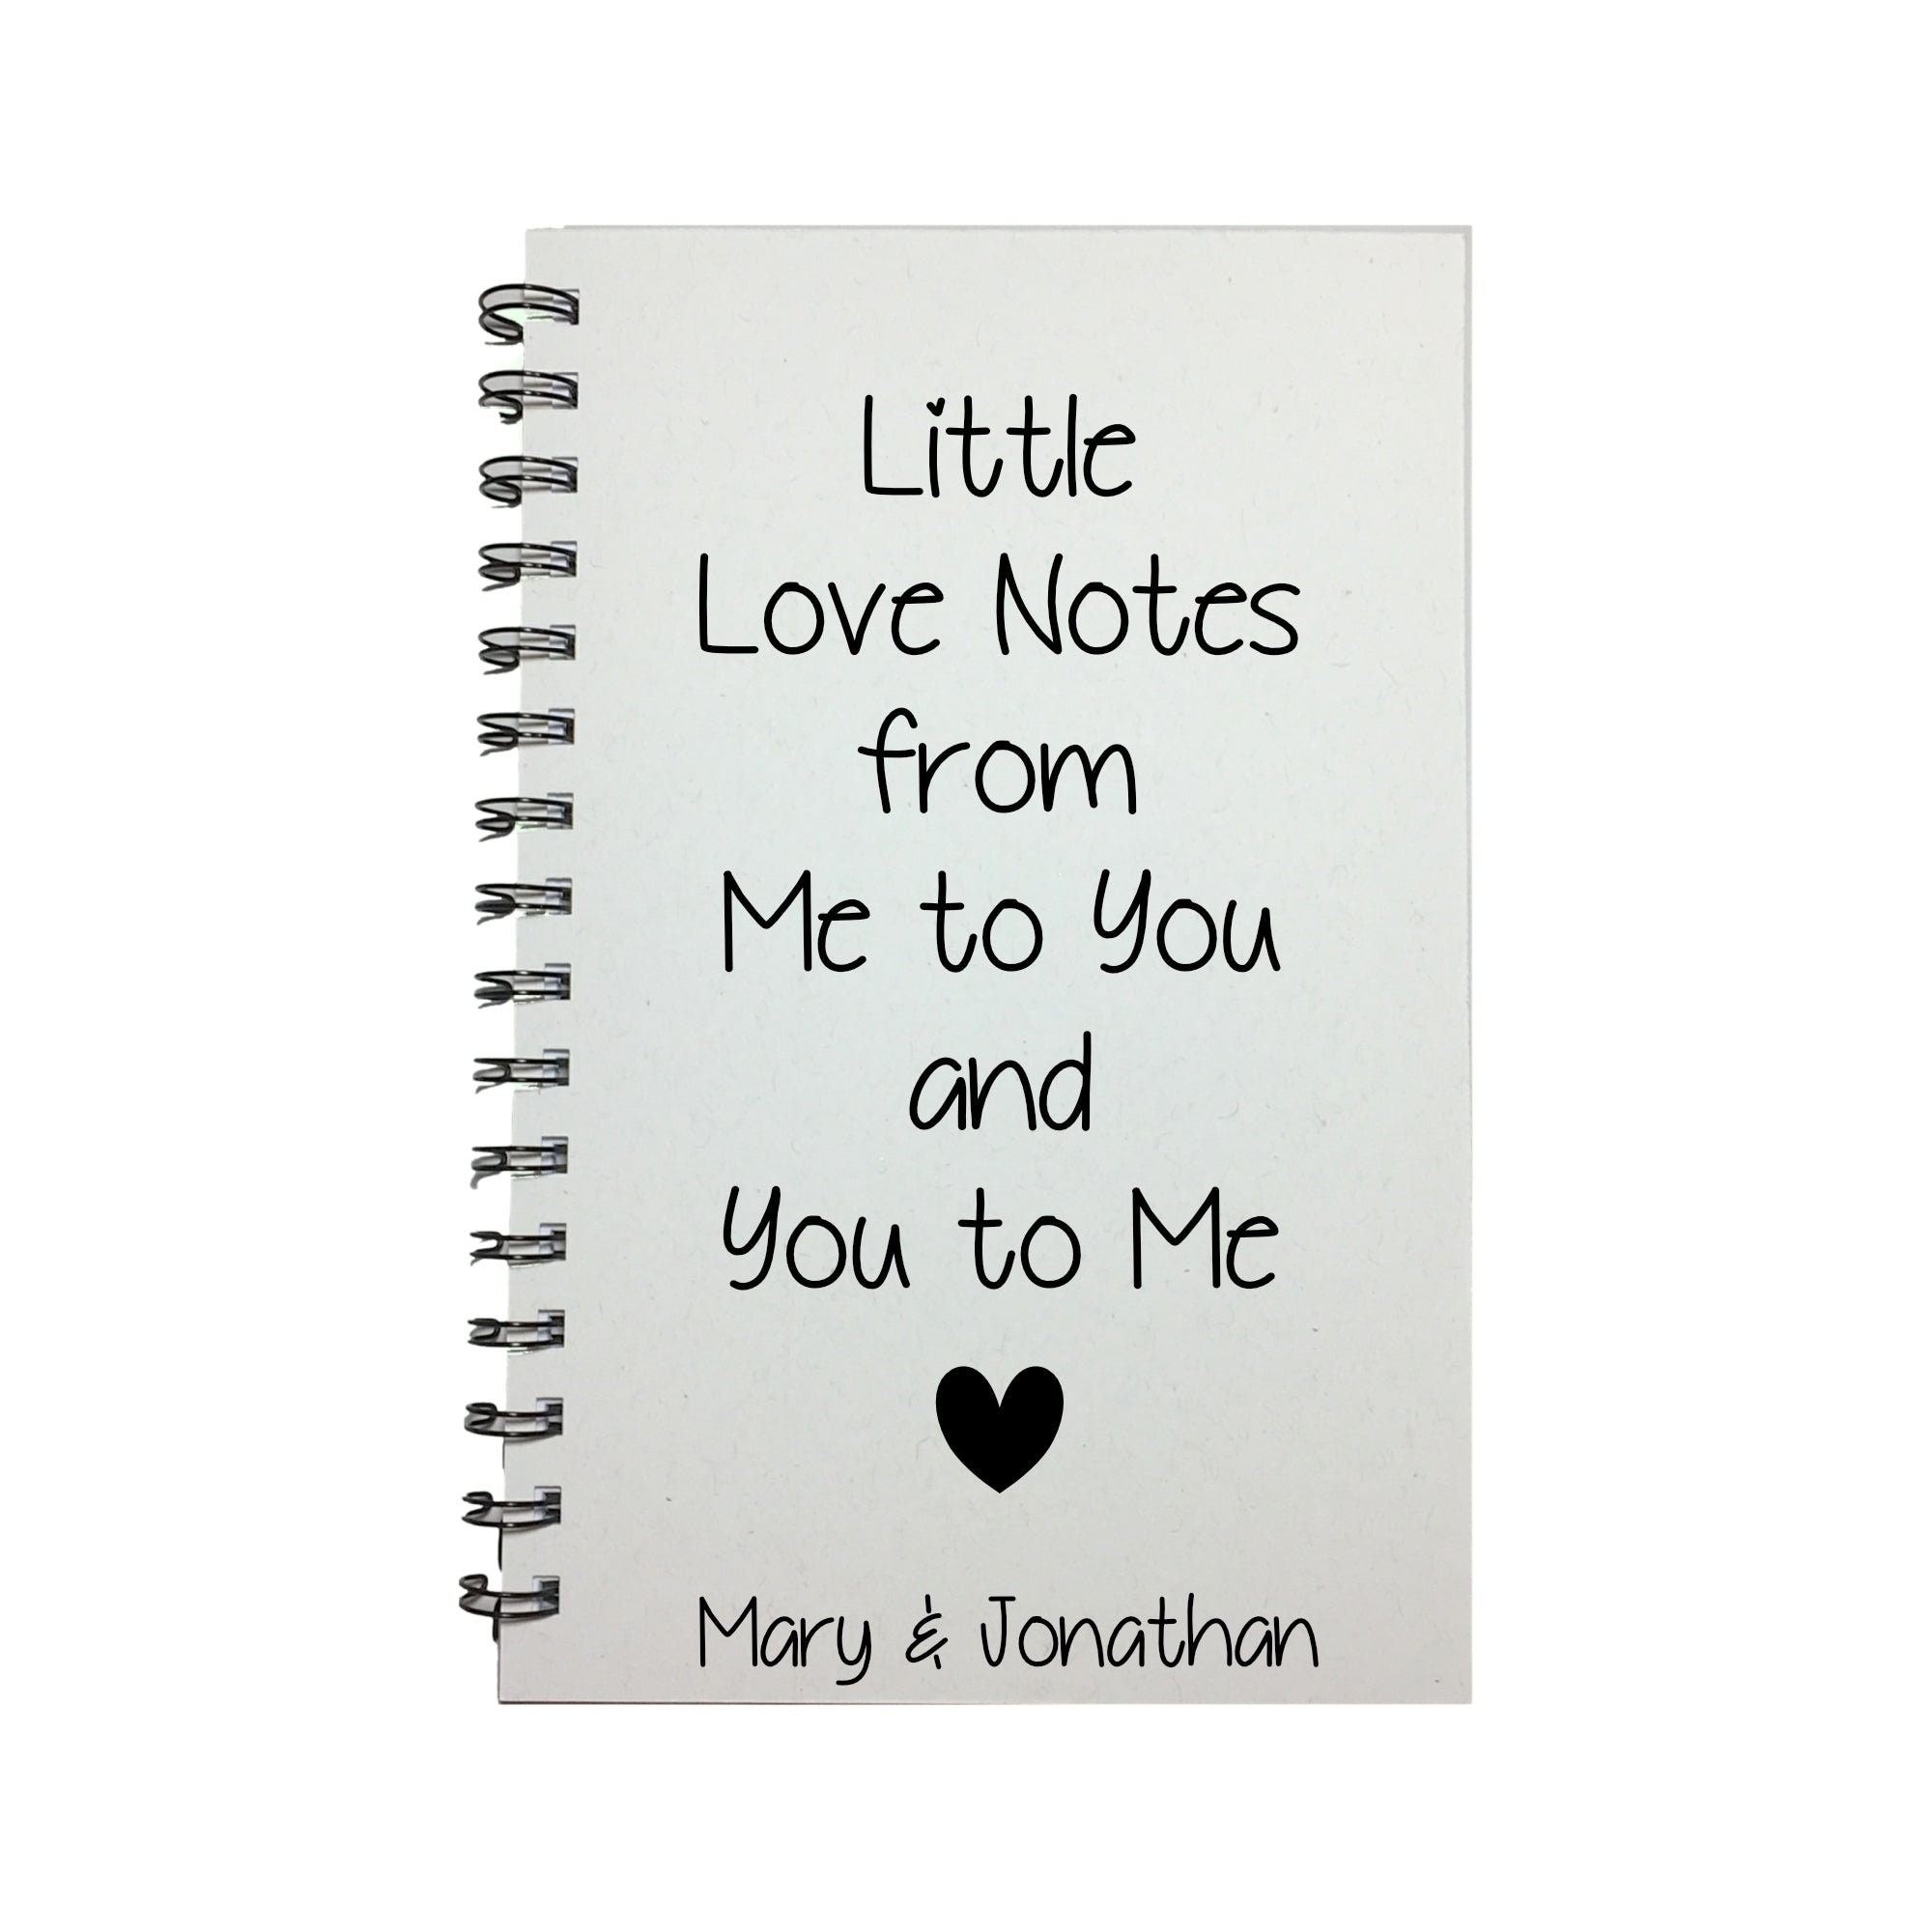 Little
Love Notes
from
Me to You
and
You to Me
Mary & Jonathan